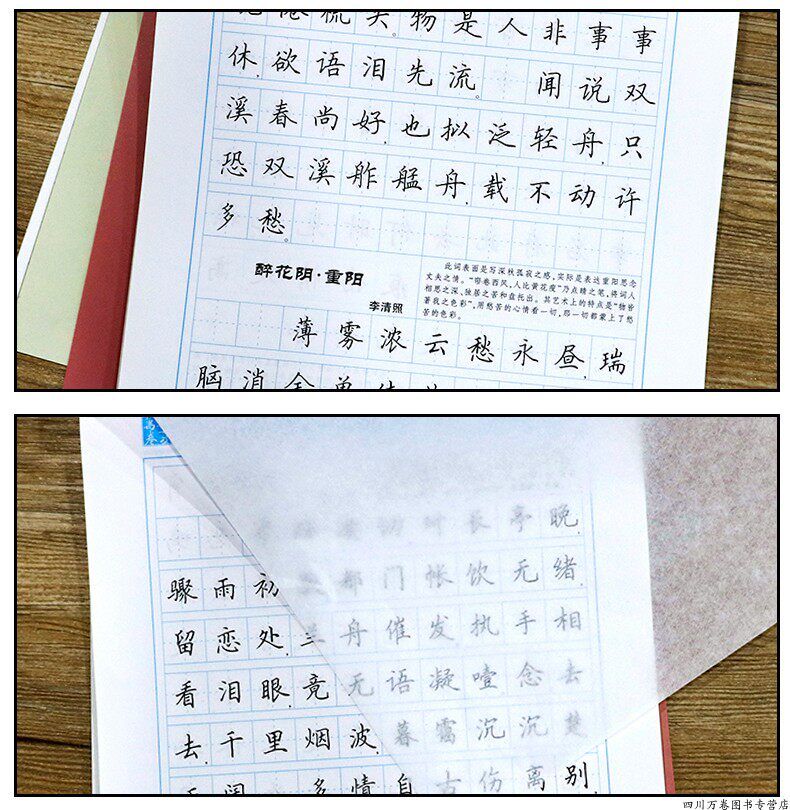 梳头。物是人非事事
休,欲语泪先流。 闻说双
溪春尚好,也拟泛轻舟,只
恐双溪舴艋舟,载不动许
多愁。
醉花阴·重阳
李清照
此词表面是写深秋孤寂之感,实际是表达重阳思念
丈夫之情。“帘卷西风,人比黄花瘦”乃点睛之笔,将词人
相思之深、独居之苦和盘托出。其艺术上的特点是“物皆
著我之色彩”,用愁苦的心情看一切,那一切都蒙上了愁
苦的色彩。
薄雾浓云愁永昼,瑞
脑消金兽
切对长亭晚,
骤雨初 都门帐饮无绪,
留恋处,兰舟催发。执手相
看泪眼,竟无语凝噎。念去
去,千里烟波,暮霭沉沉楚
多情自古伤离别,
四川万卷图书专营店